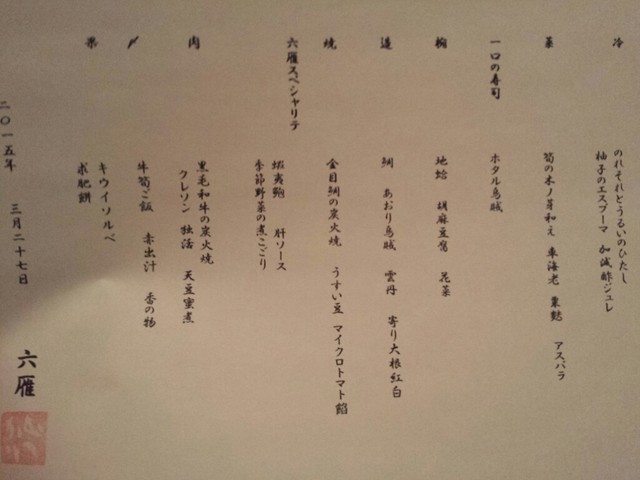 冷
のれそれとうるいのひたし
柚子のエスプーマ 加減酢ジュレ
菜
筍の木ノ芽和え 車海老 粟麩 アスパラ
一口の寿司
ホタル烏賊
椀
地蛤 胡麻豆腐 花菜
造
鯛 あおり烏賊 雲丹 寄り大根紅白
焼
金目鯛の炭火焼 うすい豆 マイクロトマト餡
六雁スペシャリテ
蝦夷鮑 肝ソース
季節野菜の煮こごり
肉
黒毛和牛の炭火焼
クレソン 独活 天豆蜜煮
〆
牛筍ご飯 赤出汁 香の物
果
キウイソルベ
求肥餅
二〇一五年 三月二十七日
六雁